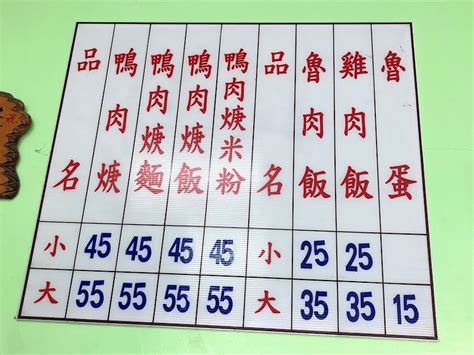 品名 小 大
鴨肉焿 45 55
鴨肉焿麵 45 55
鴨肉焿飯 45 55
鴨肉焿米粉 45 55
品名 小 大
魯肉飯 25 35
雞肉飯 25 35
魯蛋 15